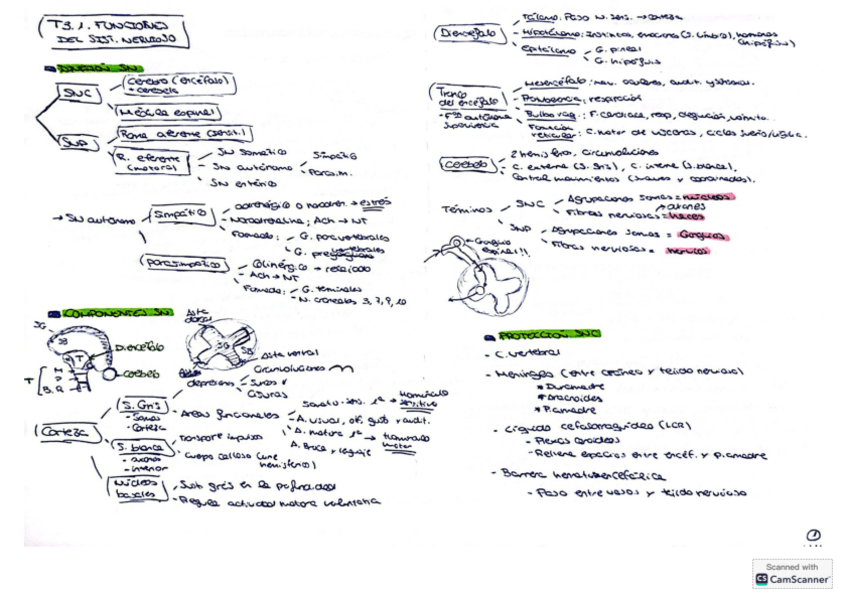 T3.1. FUNCIONES
DEL SIST. NERVIOSO
DIVISIÓN SN
SNC
Cerebro (encéfalo)
+ cerebelo
Médula espinal
SNP
Rama aferente (sensit.)
R. eferente
(motora)
SN somático
SN autónomo
Simpático
Parasim.
SN entérico
→ SN autónomo
Simpático
adrenérgico o noradren. → estrés
- Noradrenalina; Ach → NT
Formado:
G. paravertebrales
G. prevertebrales
Parasimpático
Colinérgico → relajado
- Ach → NT
Formado:
G. terminales
N. craneales 3, 7, 9, 10
COMPONENTES SN
SG
SB
T
Diencéfalo
Cerebelo
T
M
P
B.R
Asta
dorsal
SG
SB
Asta ventral
Corteza
S. Gris
- Somas
- Corteza
depresiones
Circunvoluciones
Surcos
Cisuras
Áreas funcionales
Somato-sens. 1ª → Homúnculo
sensitivo
A. visual, olf, gust y audit.
A. motora 1ª → Homúnculo
motor
A. Broca y lenguaje
S. blanca
- axones
- interior
Transporte impulsos
Cuerpo calloso (une
hemisferios)
Núcleos
basales
Sust gris en la profundidad
Regula actividad motora voluntaria
Diencéfalo
Tálamo: Paso N. sens. → corteza
Hipotálamo: Instintos, emociones (S. límbico), hormonas
(hipófisis)
Epitálamo
G. pineal
G. hipófisis
Tronco
del encéfalo
Mesencéfalo: mov. oculares, audit. y
Protuberancia: respiración
Bulbo raq.: F. cardiaca, resp, deglución, vómito.
Formación
reticular: C. motor de vísceras, ciclos sueño/vigilia.
Cerebelo
2 hemisferios, circunvoluciones
C. externa (S. gris), C. interna (S. blanca).
Control movimientos (suaves y coordinados).
Términos
SNC
Agrupaciones somas = núcleos
axones
Fibras nerviosas = haces
SNP
Agrupaciones somas = Ganglios
Fibras nerviosas = nervios
Ganglio
espinal!!
PROTECCIÓN SNC
- C. vertebral
- Meninges (entre cráneo y tejido nervioso)
* Duramadre
* Aracnoides
* Piamadre
- Líquido cefalorraquídeo (LCR)
- Plexos coroideos
- Rellena espacios entre encéf. y piamadre
- Barrera hematoencefálica
- Paso entre vasos y tejido nervioso
1
Scanned with
CS CamScanner